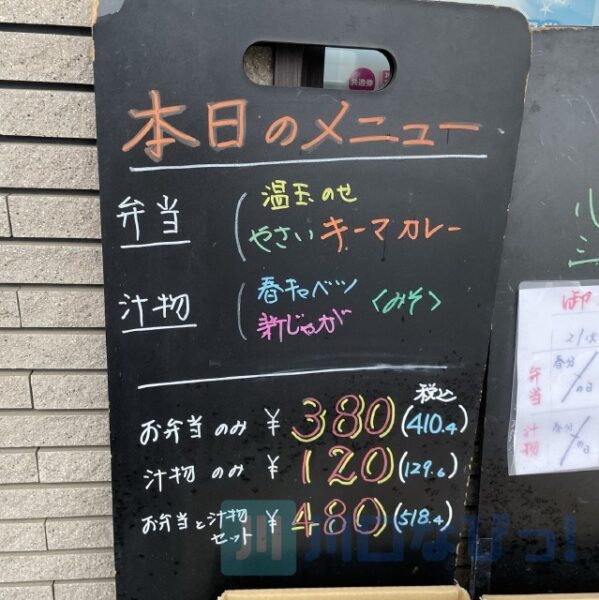 共通券
本日のメニュー
弁当
温玉のせ
やさいキーマカレー
汁物
春キャベツ
新じゃが
〈みそ〉
税込
お弁当のみ ¥380(410.4)
汁物のみ ¥120(129.6)
お弁当と汁物セット ¥480(518.4)
川口なびっ!
弁当
春分の日
汁物
春分の日